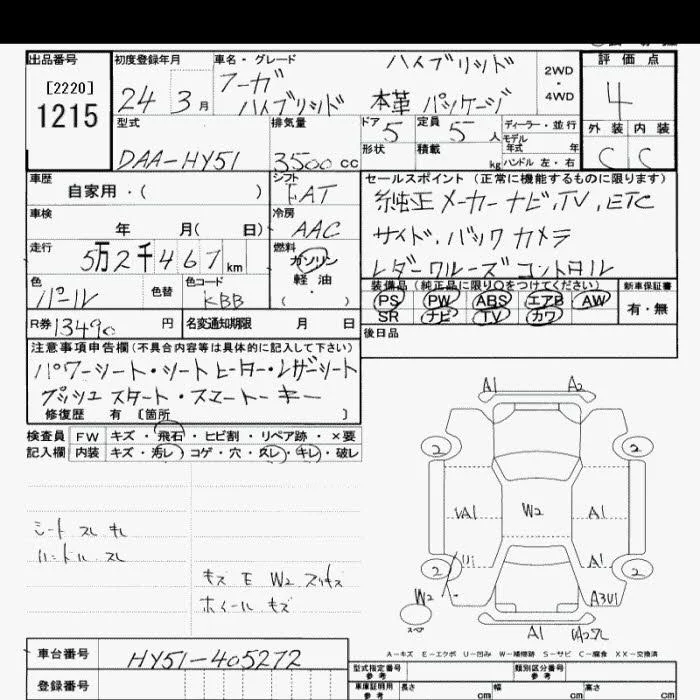 出品番号 初度登録年月 車名・グレード ハイブリッド 2WD・4WD 評価点
[2220]
1215
24 3月 フーガ ハイブリッド 本革 パッケージ 4
型式 排気量 ドア 5 定員 5人 ディーラー・並行 外装 内装
モデル年式 年
DAA-HY51 3500cc 形状 積載 kg ハンドル 左・右 C C
車歴 シフト セールスポイント (正常に機能するものに限ります)
自家用・( ) FAT 純正 メーカー ナビ、TV、ETC
車検 冷房 サイド、バック カメラ
年 月( 日) AAC
走行 燃料 レダー クルーズ コントロール
5万2千467km ガソリン
軽油・( )
色 色替 色コード 装備品 (純正品に限り○をつけてください) 新車保証書
パール KBB PS PW ABS エアB AW 有・無
SR ナビ TV カワ
R券 13490円 名変通知期限 月 日 後日品
注意事項申告欄(不具合内容等は具体的に記入して下さい)
パワーシート・シートヒーター・レザーシート
プッシュスタート・スマートーキー
修復歴 有 [箇所 ]
検査員 FW キズ・飛石・ヒビ割・リペア跡・×要
記入欄 内装 キズ・汚レ・コゲ・穴・スレ・キレ・破レ
A1 A2
2 2
VA1 W2 A1
A1
2 2
W2 A3U1
スペア
A1
シート スレ キレ
ハンドル スレ
キズ E W2 スリキズ
ホイール キズ
A-キズ E-エクボ U-凹み W-補修跡 S-サビ C-腐食 XX-交換済
車台番号 HY51-405272
登録番号
型式指定番号 参考 類別区分番号 参考
車庫証明用 参考 長さ cm 幅 cm 高さ cm